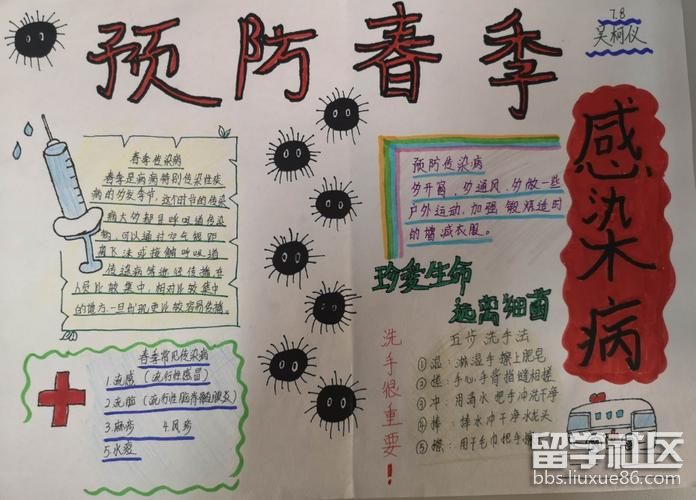 预防春季
7.8
吴柯仪
感染病
春季传染病
春季是病菌特别传染性疾
病的多发季节,这个时节的传染
病大多都是呼吸道传染
病,可以通过空气短距
离飞沫或接触呼吸道
传道病等途径传播在
人员比较集中,相对比较集中
的地方,一旦出现更比较容易传播。
预防传染病
多开窗,多通风,多做一些
户外运动,加强锻炼适时
的增减衣服。
珍爱生命
远离细菌
春季常见传染病
1.流感(流行性感冒)
2.流脑(流行性脑脊髓膜炎)
3.麻疹 4.风疹
5.水痘
洗手很重要!
五步洗手法
①湿:淋湿手擦上肥皂
②搓:手心手背指缝相搓
③冲:用清水把手冲洗干净
④捧:捧水冲干净水龙头
⑤擦:用干毛巾把手擦
留学社区
bbs.liuxue86.com